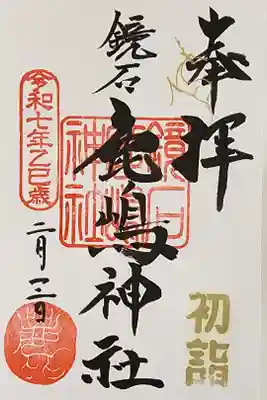 奉拝
初詣
鏡石
鹿嶋神社
鏡石
神社
令和七年乙巳歳
二月二日